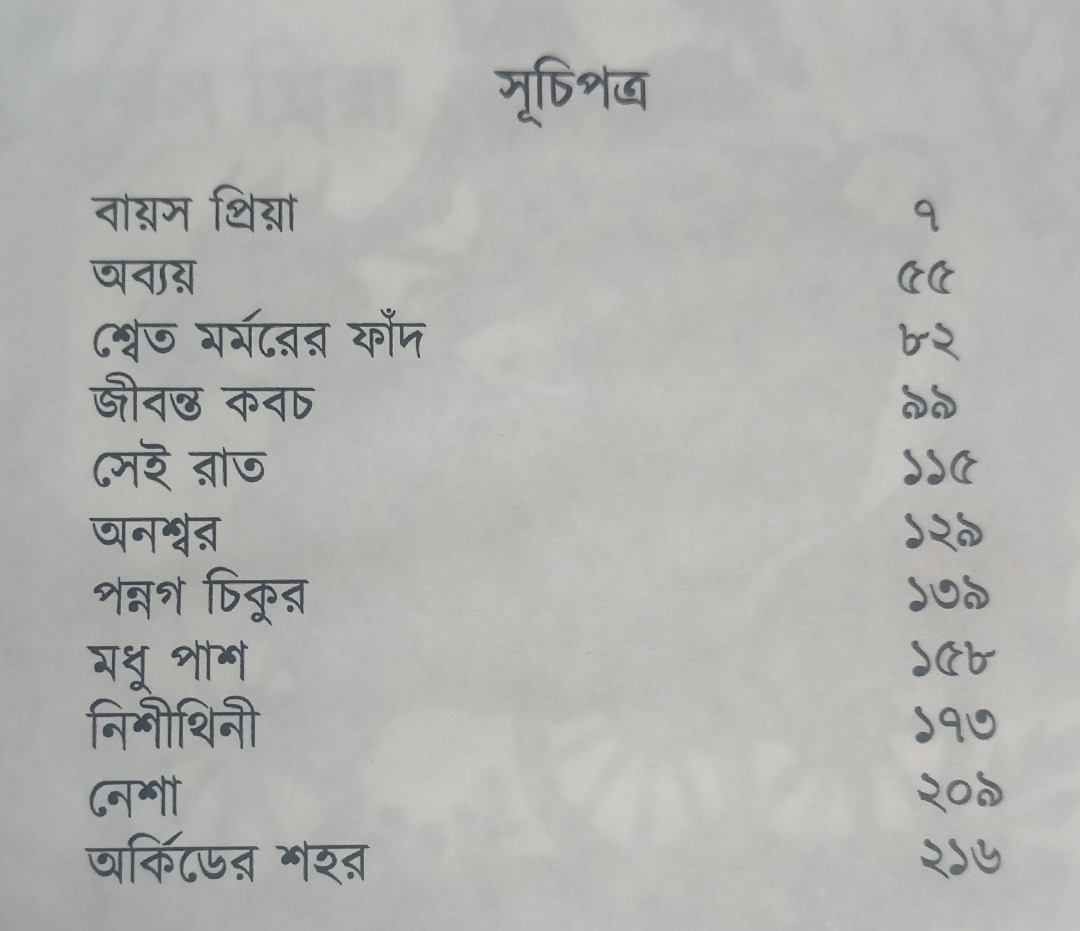 সূচিপত্র
বায়স প্রিয়া ৭
অব্যয় ৫৫
শ্বেত মর্মরের ফাঁদ ৮২
জীবন্ত কবচ ৯৯
সেই রাত ১১৫
অনশ্বর ১২৯
পন্নগ চিকুর ১৩৯
মধু পাশ ১৫৮
নিশীথিনী ১৭৩
নেশা ২০৯
অর্কিডের শহর ২১৬